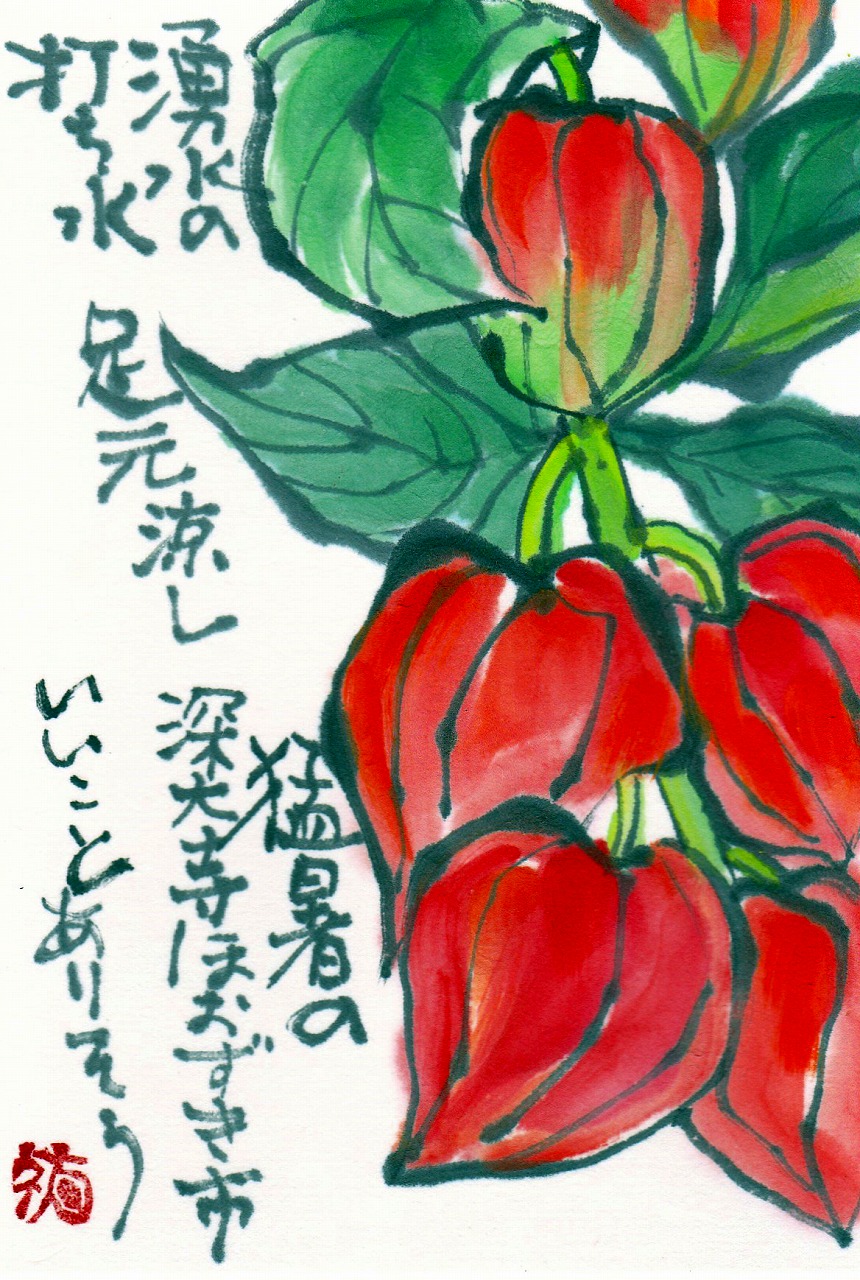 湧水の
打ち水
足元涼し
猛暑の
深大寺ほおずき市
いいことありそう